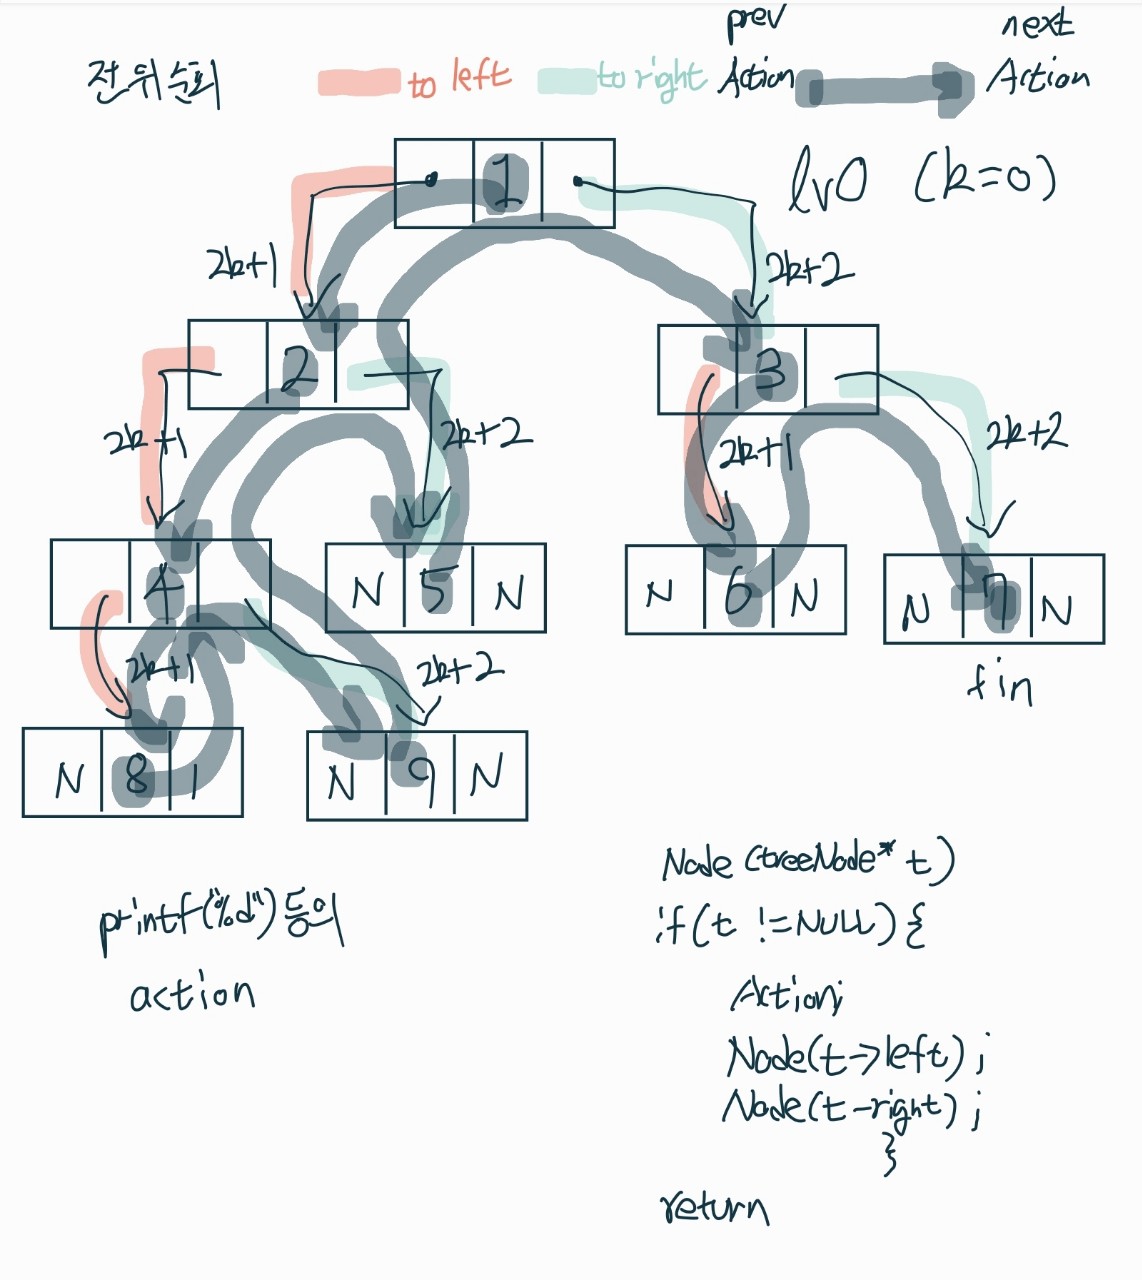 prev
next
전뒤순회
to left
to right
Action
Action
1
lv0 (k=0)
2k+1
2k+2
2
3
2k+1
2k+2
2k+1
2k+2
4
N 5 N
N 6 N
N 7 N
2k+1
2k+2
fin
N 8 1
N 9 N
printf("%d") 등의
action
Node (treeNode* t)
if(t !=NULL) {
Action;
Node(t->left) ;
Node(t-right) ;
}
return